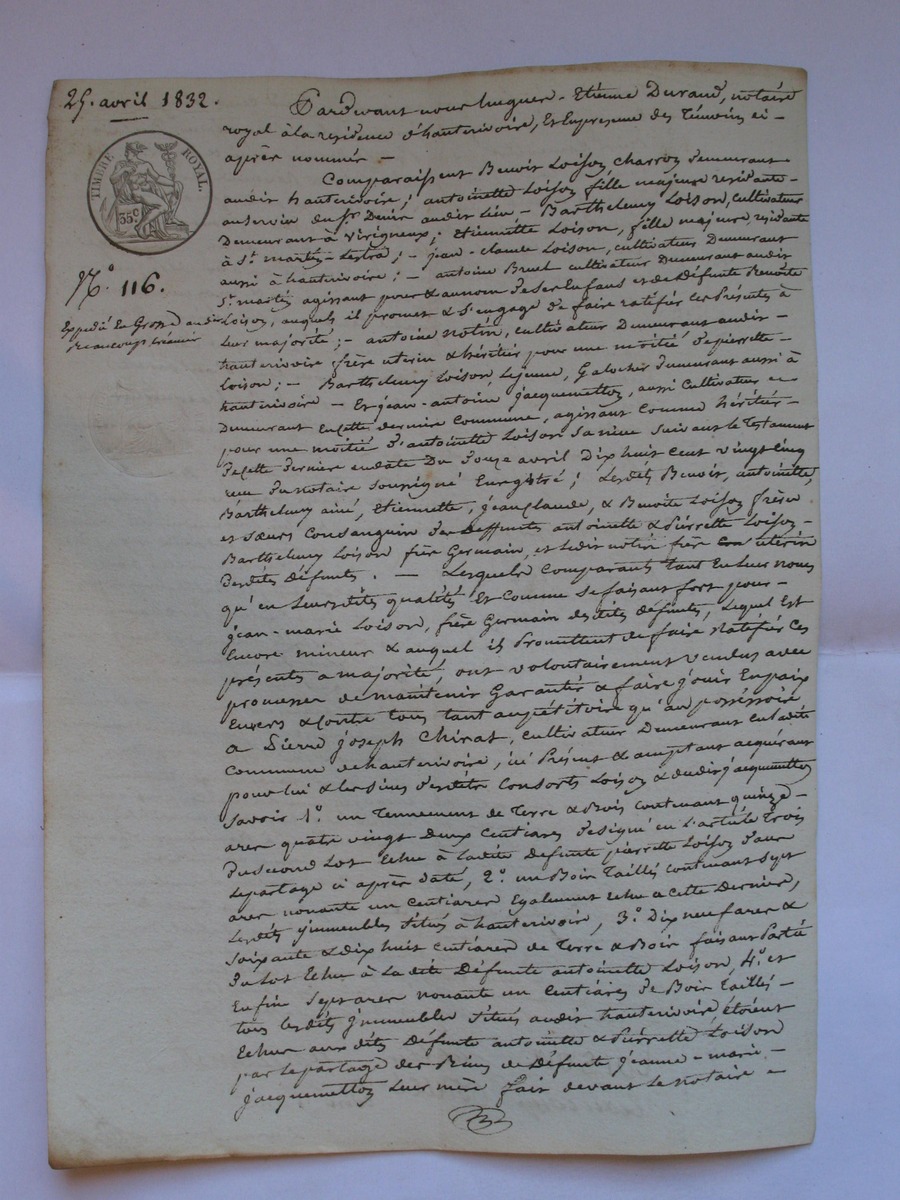 25. avril 1832.
TIMBRE ROYAL.
35c
N.° 116.
Expédié En Grosse au dit
Pardevant nous hugues-Etienne Durand, notaire
royal à la residence d'hauterivoire, Et En presence des Témoins ci-
après nommés —
Comparaissent Benoit Loison, charron demeurant
audit hauterivoire; antoinette Loison, fille majeure residante
au servin du Sr. Denire audit Lieu — Barthelemy Loison, cultivateur
Demeurant à Virigneux; Etiennette Loison, fille majeure, residante
à St. martin-Lestra; — jean-claude Loison, cultivateur Demeurant
aussi à hauterivoire; — antoine Bruel cultivateur Demeurant audit
St. martin agissant pour & au nom de ses Enfans et de Défunte Benoite
Loison, auquels il promet & s'engage de faire ratifier ces Présentes à
Leur majorité; — antoine notin, cultivateur Demeurant audit-
hauterivoire frère uterin & héritier pour une moitié de pierrette-
Loison; — Barthelemy Loison Lejeune, Galocher demeurant aussi à
hauterivoire — Et jean-antoine jacquemetton, aussi Cultivateur en
Demeurant En cette dernière Commune, agissant Comme héritier-
pour une moitié d'antoinette Loison sa nièce suivant le Testament
de cette dernière en date Du Douze avril Dix huit cent vingt cinq
reçu du notaire soussigné Enregistré; Lesdits Benoit, antoinette,
Barthelemy ainé, Etiennette, jean Claude, & Benoite Loison frères
et sœurs Consanguin des deffuntes antoinette & Pierrette Loison-
Barthelemy Loison frère Germain, et ledit notin frère uterin
desdites Défuntes. — Lesquels Comparants tant En Leur noms
qu'en leursdites qualités Et Comme se faisant fort pour-
jean-marie Loison, frère Germain desdites défuntes, Lequel Est
Encore mineur & auquel ils Promettent de faire ratifier ces
présentes a majorité, ont volontairement vendus avec
promesse de maintenir Garantir & faire jouir En paix
Envers & Contre tous tant au pétitoire qu'au possessoire
a Sieur joseph Chirat, cultivateur Demeurant en ladite
commune de hauterivoire, ici Présent & acceptant acquérant
pour lui & les siens desdits Consorts Loison & dudit jacquemetton
Savoir 1.° un Tennement de Terre & Bois Contenant quinze-
ares quatre vingt Deux Centiares désigné en l'article Trois
Du second Lot Echu à Ladite Défunte pierrette Loison dans
Le partage ci après daté, 2.° un Bois Taillis contenant sept
ares nonante un centiares Egalement Echu a cette Dernière,
Lesdits jmmeubles situés à hauterivoire, 3.° Dix neuf ares &
soixante & dix huit centiares de Terre & Bois faisant Partie
Du Lot Echu à La dite Défunte antoinette Loison, 4.° et
En fin Sept ares nonante un Centiares de Bois Taillis-
tous lesdits jmmeubles situés audit hauterivoire, étoient
Echus aux dites Défuntes antoinette & Pierrette Loison
par le partage des Biens de Défunte jeanne-marie-
jacquemetton Leur mère fait devant Le notaire -